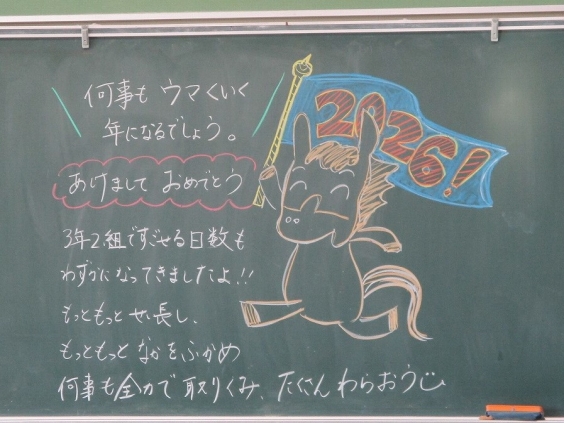 何事も ウマくいく
年になるでしょう。
2026!
あけまして おめでとう
3年2組ですごせる日数も
わずかになってきましたよ!!
もっともっと せい長し、
もっともっと なかをふかめ
何事も全力で 取りくみ、たくさん わらおう